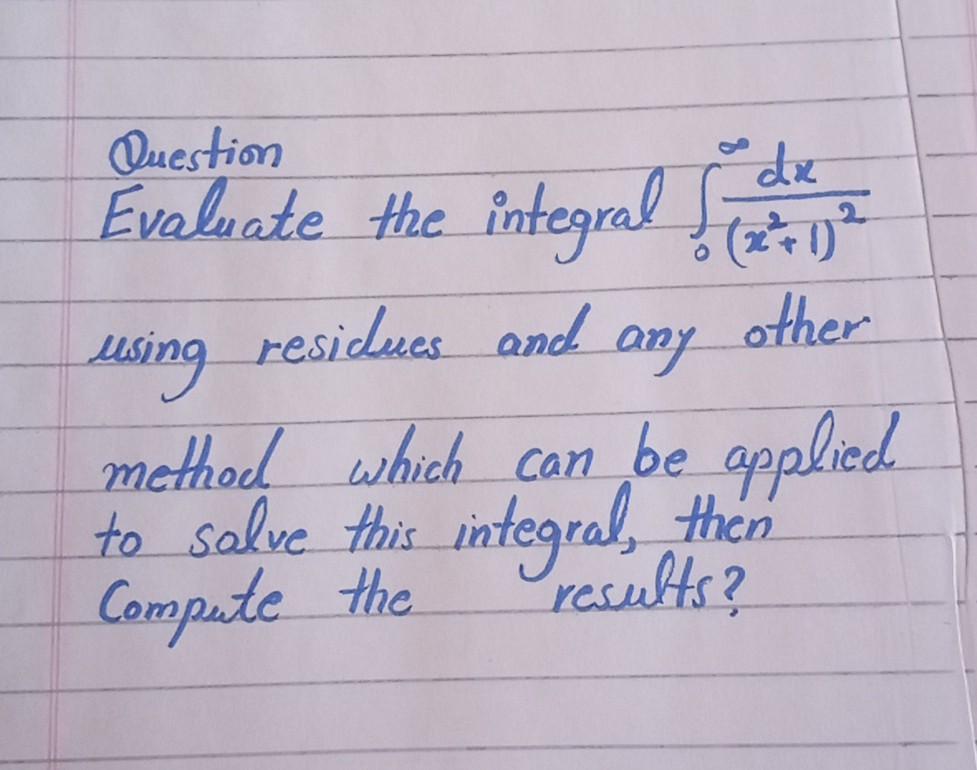 Question
Evaluate the integral ∫₀^∞ dx/(x²+1)²
using residues and any other
method which can be applied
to solve this integral, then
Compute the results?